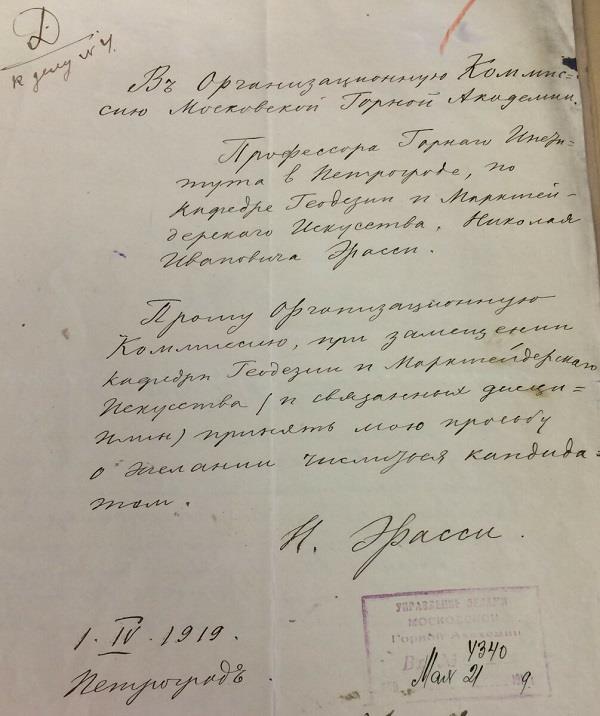 Д
к делу № 4.
Въ Организационную Коммис=
сию Московской Горной Академии.
Профессора Горнаго Инсти=
тута в Петрограде, по
кафедре Геодезии и Маркшей-
дерского Искусства, Николая
Ивановича Эрасси.
Прошу Организационную
Коммиссию, при замещении
кафедры Геодезии и Маркшейдерскаго
Искусства (и связанных дисци=
плин) принять мою просьбу
о желании числиться кандида=
том.
Н. Эрасси.
1. IV. 1919.
Петроградъ.
УПРАВЛЕНИЕ ДЕЛАМИ
МОСКОВСКОЙ
Горной Академии
4340
Мая 21 9.